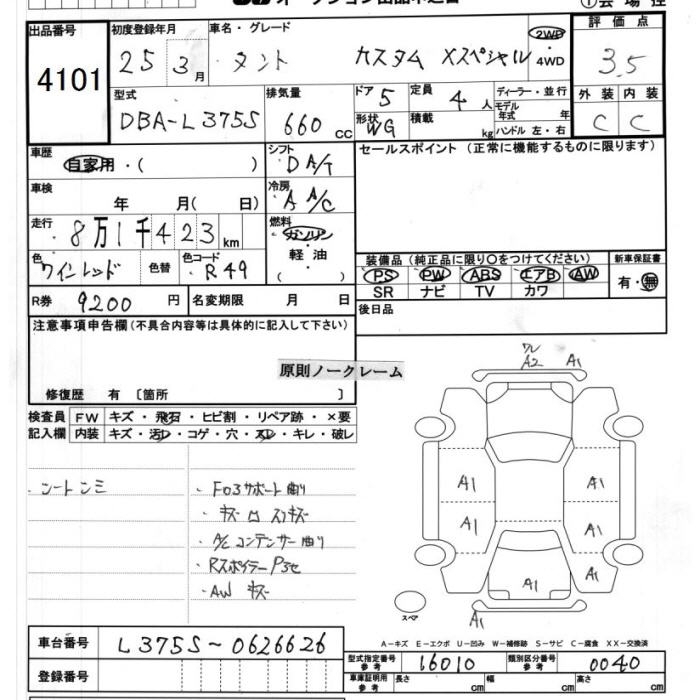 オークション出品申込書 ①会場控
出品番号 初度登録年月 車名・グレード 2WD 評価点
4101 25年 3月 タント カスタム Xスペシャル ・4WD 3.5
型式 排気量 ドア 5 定員 4人 ディーラー・並行 外装 内装
DBA-L375S 660cc 形状 WG 積載 kg モデル年式 年 C C
ハンドル 左・右
車歴 自家用・( ) シフト DA/T セールスポイント(正常に機能するものに限ります)
車検 年 月( 日) 冷房 AA/C
走行 8万1千423km 燃料 ガソリン
軽油
( )
色 ワインレッド 色替 色コード R49 装備品(純正品に限り○をつけてください) 新車保証書
PS PW ABS エアB AW 有・無
SR ナビ TV カワ
R券 9200円 名変期限 月 日 後日品
注意事項申告欄(不具合内容等は具体的に記入して下さい)
原則ノークレーム
修復歴 有〔箇所 〕
検査員 FW キズ・飛石・ヒビ割・リペア跡・×要
記入欄 内装 キズ・汚レ・コゲ・穴・スレ・キレ・破レ
シートシミ
・F03サポート曲り
・キズ スリキズ
・A/Cコンデンサー曲り
・Rスポイラー P3セ
・AW キズ
ワレ
A2 A1
A1 A1
A1 A1
A1 A1
スペア A1
A-キズ E-エクボ U-凹み W-補修跡 S-サビ C-腐食 XX-交換済
車台番号 L375S-0626626
型式指定番号 参考 16010 類別区分番号 参考 0040
登録番号 車庫証明用 参考 長さ cm 幅 cm 高さ cm